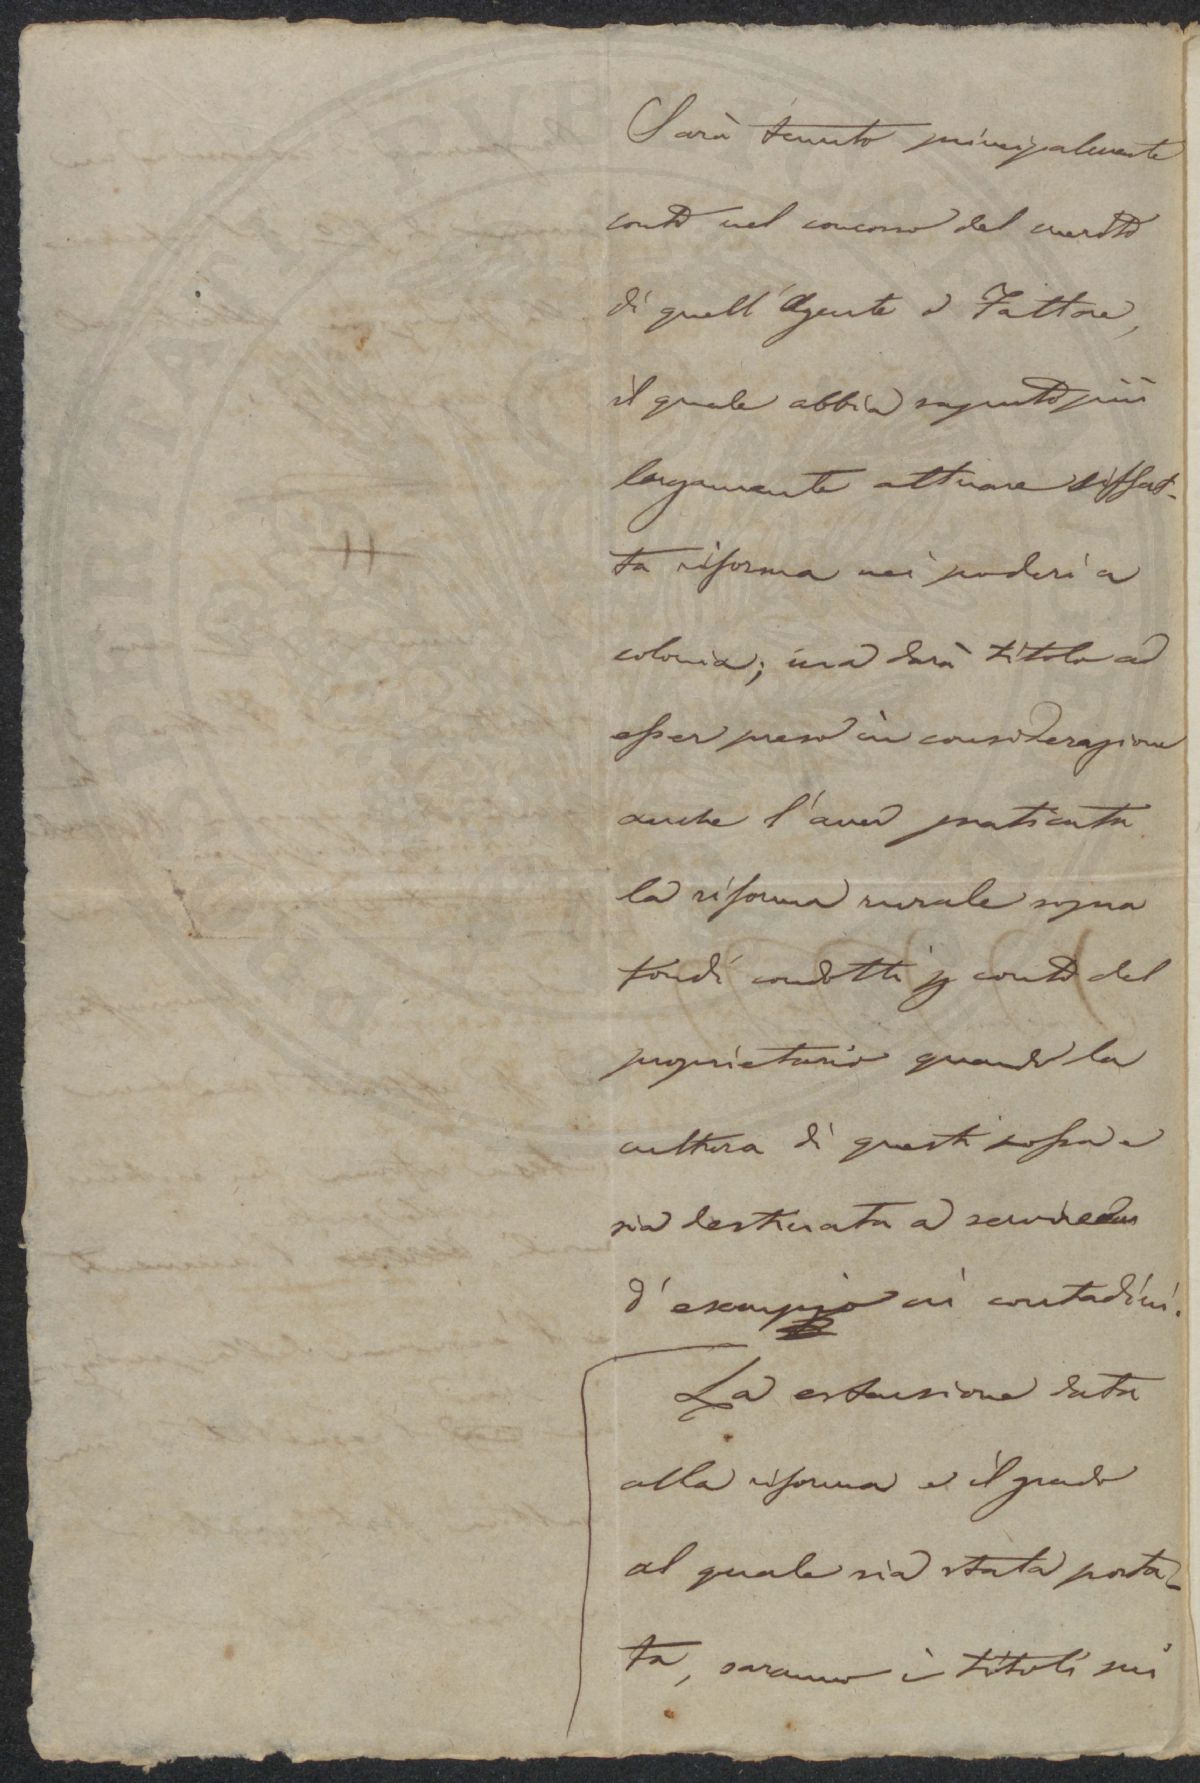 Sarà tenuto principalmente
conto nel concorso del merito
di quell'Agente o Fattore,
il quale abbia saputo più
largamente attuare siffat-
ta riforma nei poderi a
colonia; ma darà titolo ad
esser preso in considerazione
anche l'aver praticata
la riforma rurale sopra
fondi condotti p conto del
proprietario quando la
cultura di questi possa e
sia destinata a servire
d'esempio ai contadini.
La estensione data
alla riforma e il grado
al quale sia stata porta-
ta, saranno i titoli sui